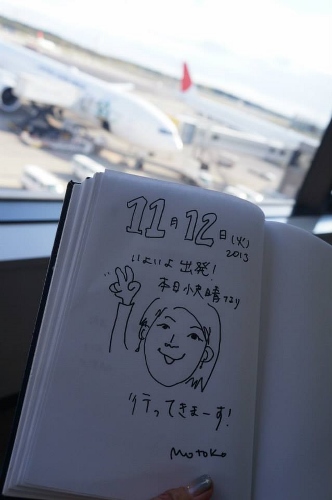 11月12日(火)
2013
いよいよ出発!
本日快晴なり
行ってきまーす!
MOTOKO